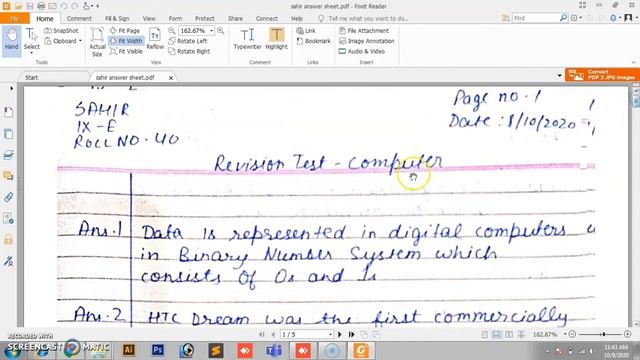 sahir answer sheet.pdf - Foxit Reader
File
Home
Comment
View
Form
Protect
Share
Connect
Help
Tell me what you want to do...
Hand
Select
SnapShot
Clipboard
Bookmark
Actual Size
Fit Page
Fit Width
Fit Visible
162.67%
Rotate Left
Rotate Right
Typewriter
Highlight
From File
Link
Bookmark
File Attachment
Image Annotation
Audio & Video
Start
sahir answer sheet.pdf
Convert
PDF 2 JPG Images
SAHIR
IX-E
ROLL NO. 40
Page no. 1
Date : 8/10/2020
Revision Test - Computer
Ans. 1 Data is represented in digital computers
in Binary Number System which
consists of 0s and 1s
Ans. 2 HTC Dream was the first commercially
1 / 5
162.67%
RECORDED WITH
SCREENCAST MATIC
11:43 AM
10/9/2020